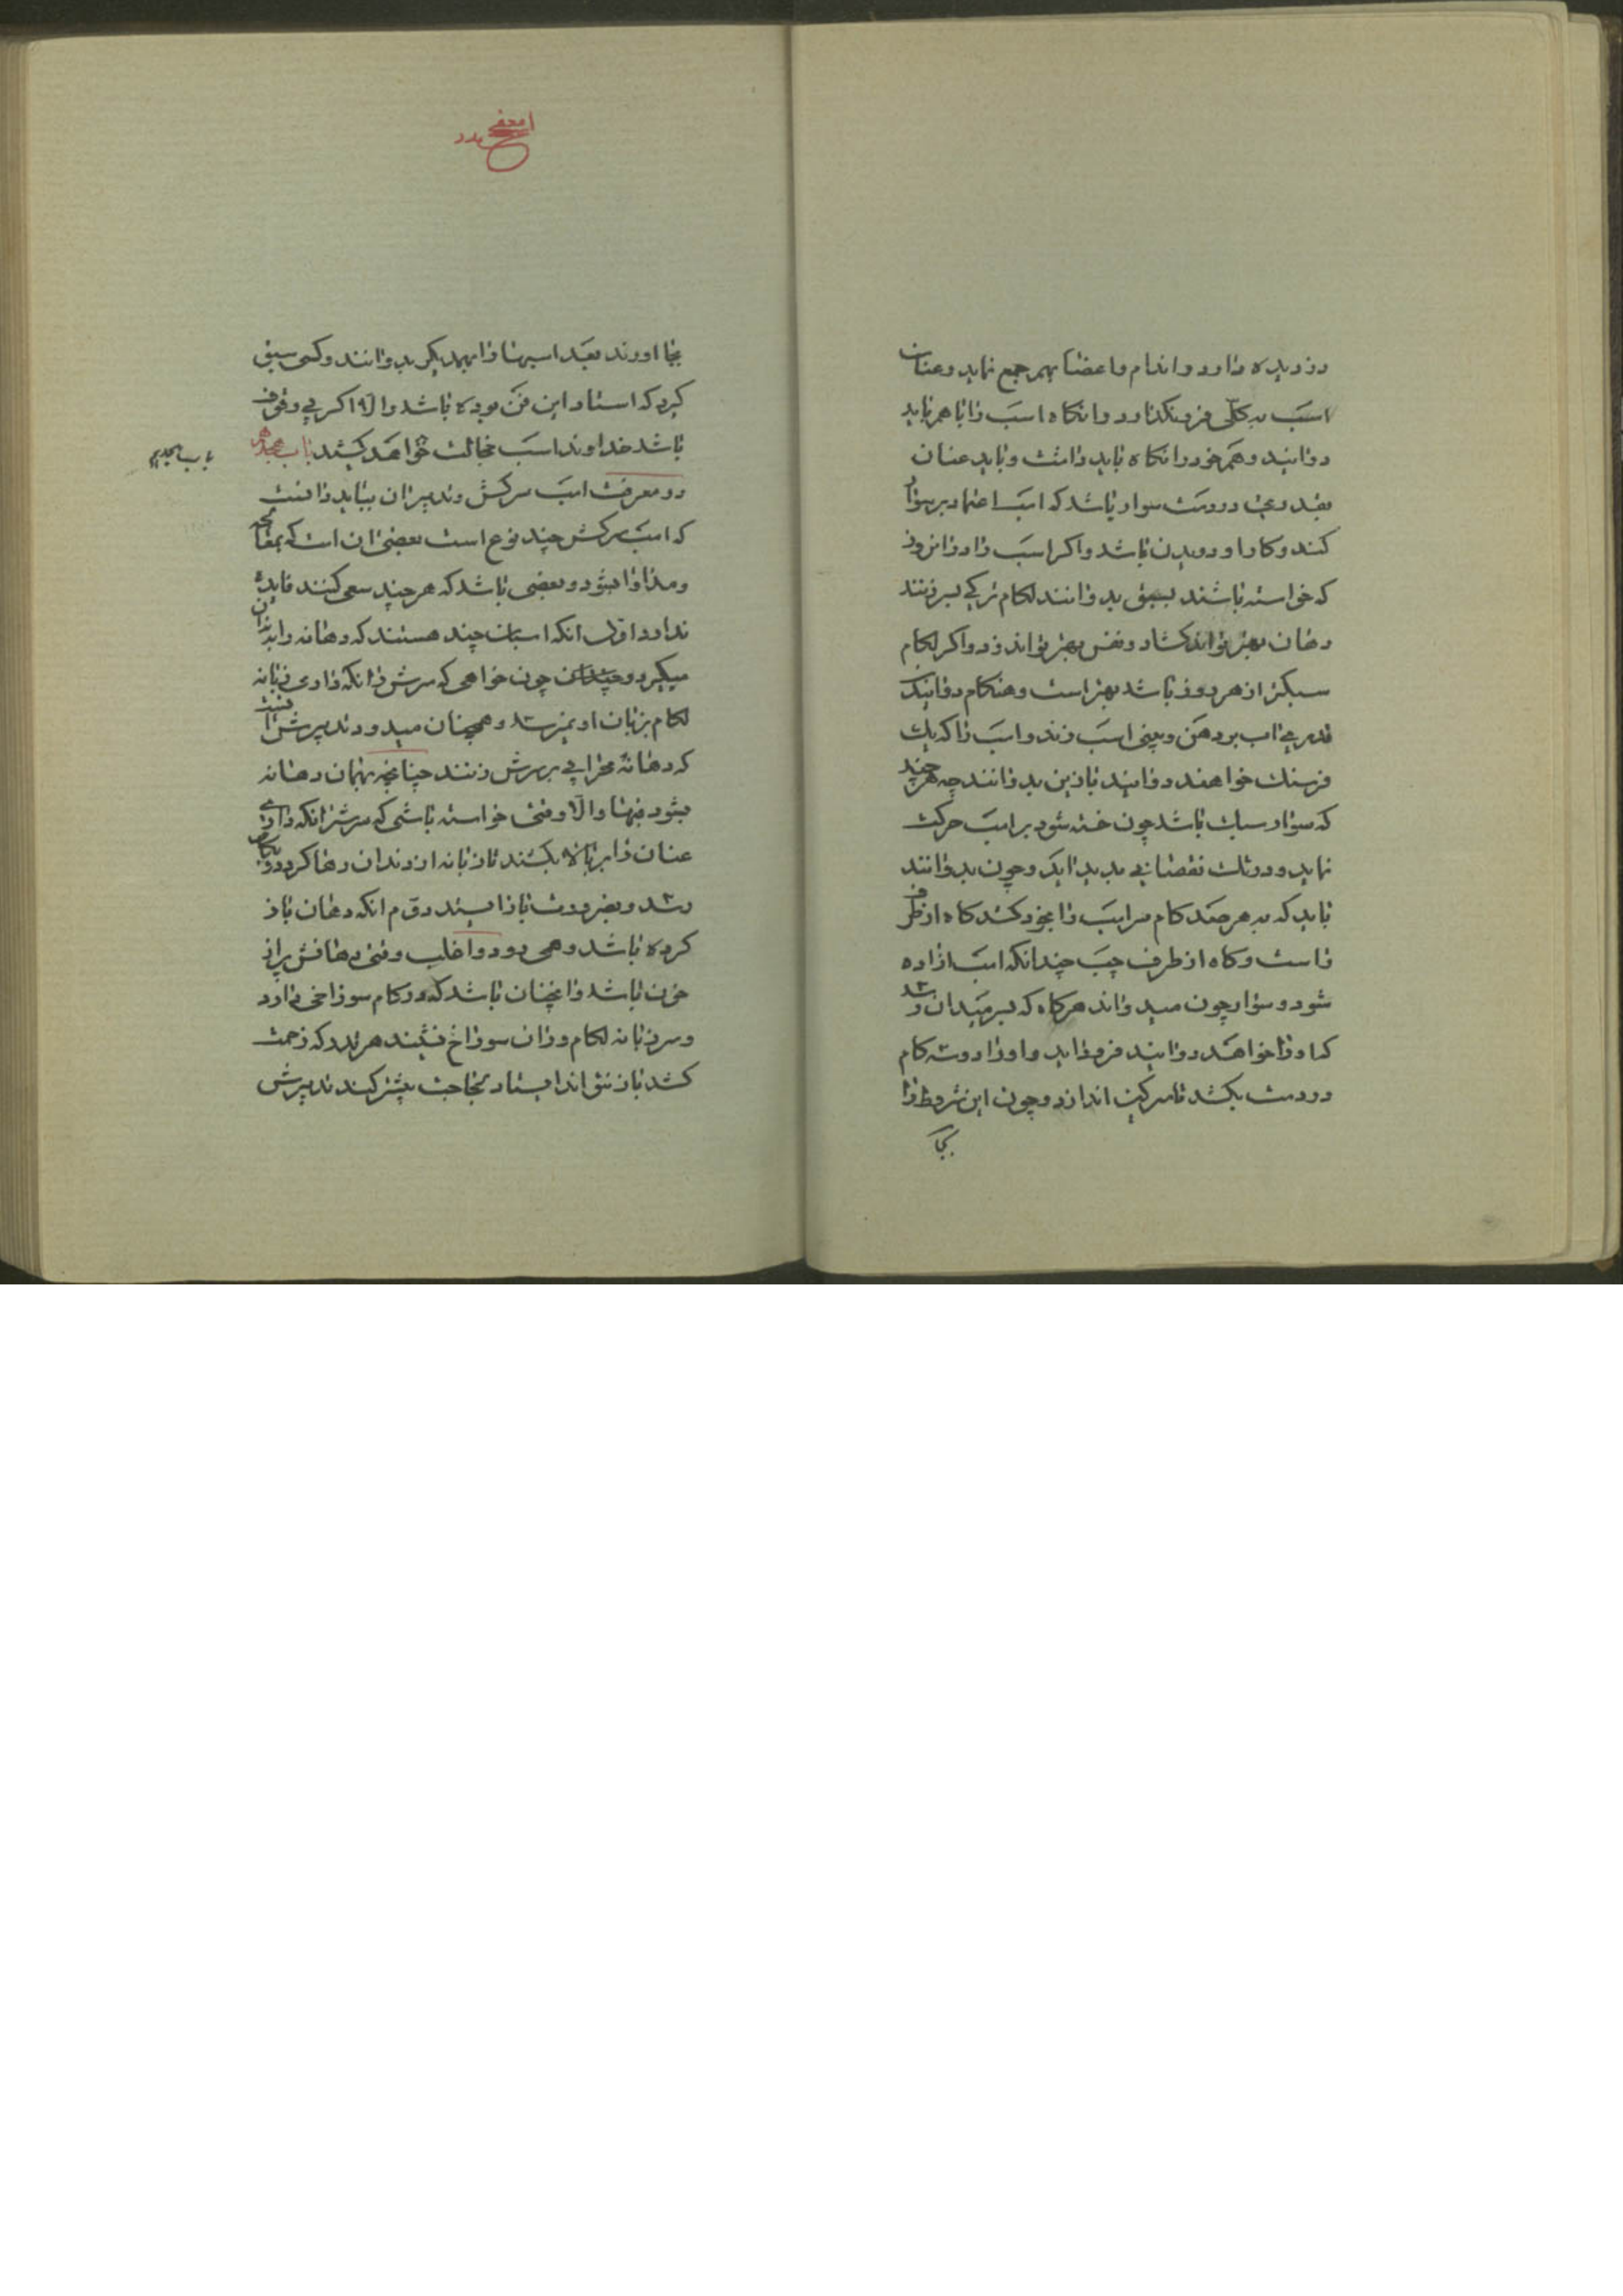 دزدیده دارد و اندام و اعضا بهم جمع نماید و عنان
اسب به کلی فرو نکذارد و انکاه اسب را با هم باید
دوانید و هم خود را نکاه باید داشت و باید عنان
بقدری در دست سوار باشد که اسب اعتماد بر سوار
کند و کار او دویدن باشد و اکر اسب را در انروز
که خواسته باشند بسبق بدوانند لکام ترکی بسر زنند
دهان بهتر تواند کشاد و نفس بهتر تواند زد و اکر لکام
سبکتر از هر روز باشد بهتر است و هنکام دوانیدن
قدری اب بر دهن و بینی اسب زنند و اسب را که یک
فرسنک خواهند دوانید با زین بدوانند چه هر چند
که سوار سبک باشد چون خسته شود بر اسب حرکت
نماید و در تک نقصانی پدید اید و چون بدوانند
باید که به هر صد کام سر اسب را بخود کشد کاه از طرف
راست و کاه از طرف چپ چندانکه اسب ازاده
شود و سوار چون میدواند هرکاه که بسر میدان رسد
که او را خواهند دوانید فرود اید و او را دوسه کام
در دست بکشد تا سرکین اندازد و چون این شروط را
بجا
بجا اورند بعد اسبها را بهمدیکر بدوانند و کسی سبق
کیرد که استاد این فن بوده باشد و الا اکر بی وقوف
باشد خداوند اسب خجالت خواهد کشید باب هجدهم
باب هجدهم
در معرفت اسب سرکش و تدبیر ان بباید دانست
که اسب سرکش چند نوع است بعضی ان است که بمعالجه
و مداوا بشود و بعضی باشد که هر چند سعی کنند فایده
ندارد اول انکه اسبان چند هستند که دهانه را بدندان
میکیرد و چون خواهی که سرش را نکه داری زبانه
لکام بزبان او نمیرسد و همچنان میدود تدبیرش انست
که دهانه بر سرش زنند چنانچه دهانه
بشود فبها و الا وقتی خواسته باشی که سرش را نکه داری
عنان را بر بالا بکشند تا زبانه از دندان رها کردد و بکام
رسد و بضرورت باز ایستد دوم انکه دهان باز
کرده باشد و همی دود و اغلب وقتی دهانش پر از
خون باشد و انچنان باشد که در کام سوراخی دارد
و سر زبانه لکام در ان سوراخ نشیند هرچند که زحمت
کشد باز نتواند ایستاد بیشتر کند تدبیرش